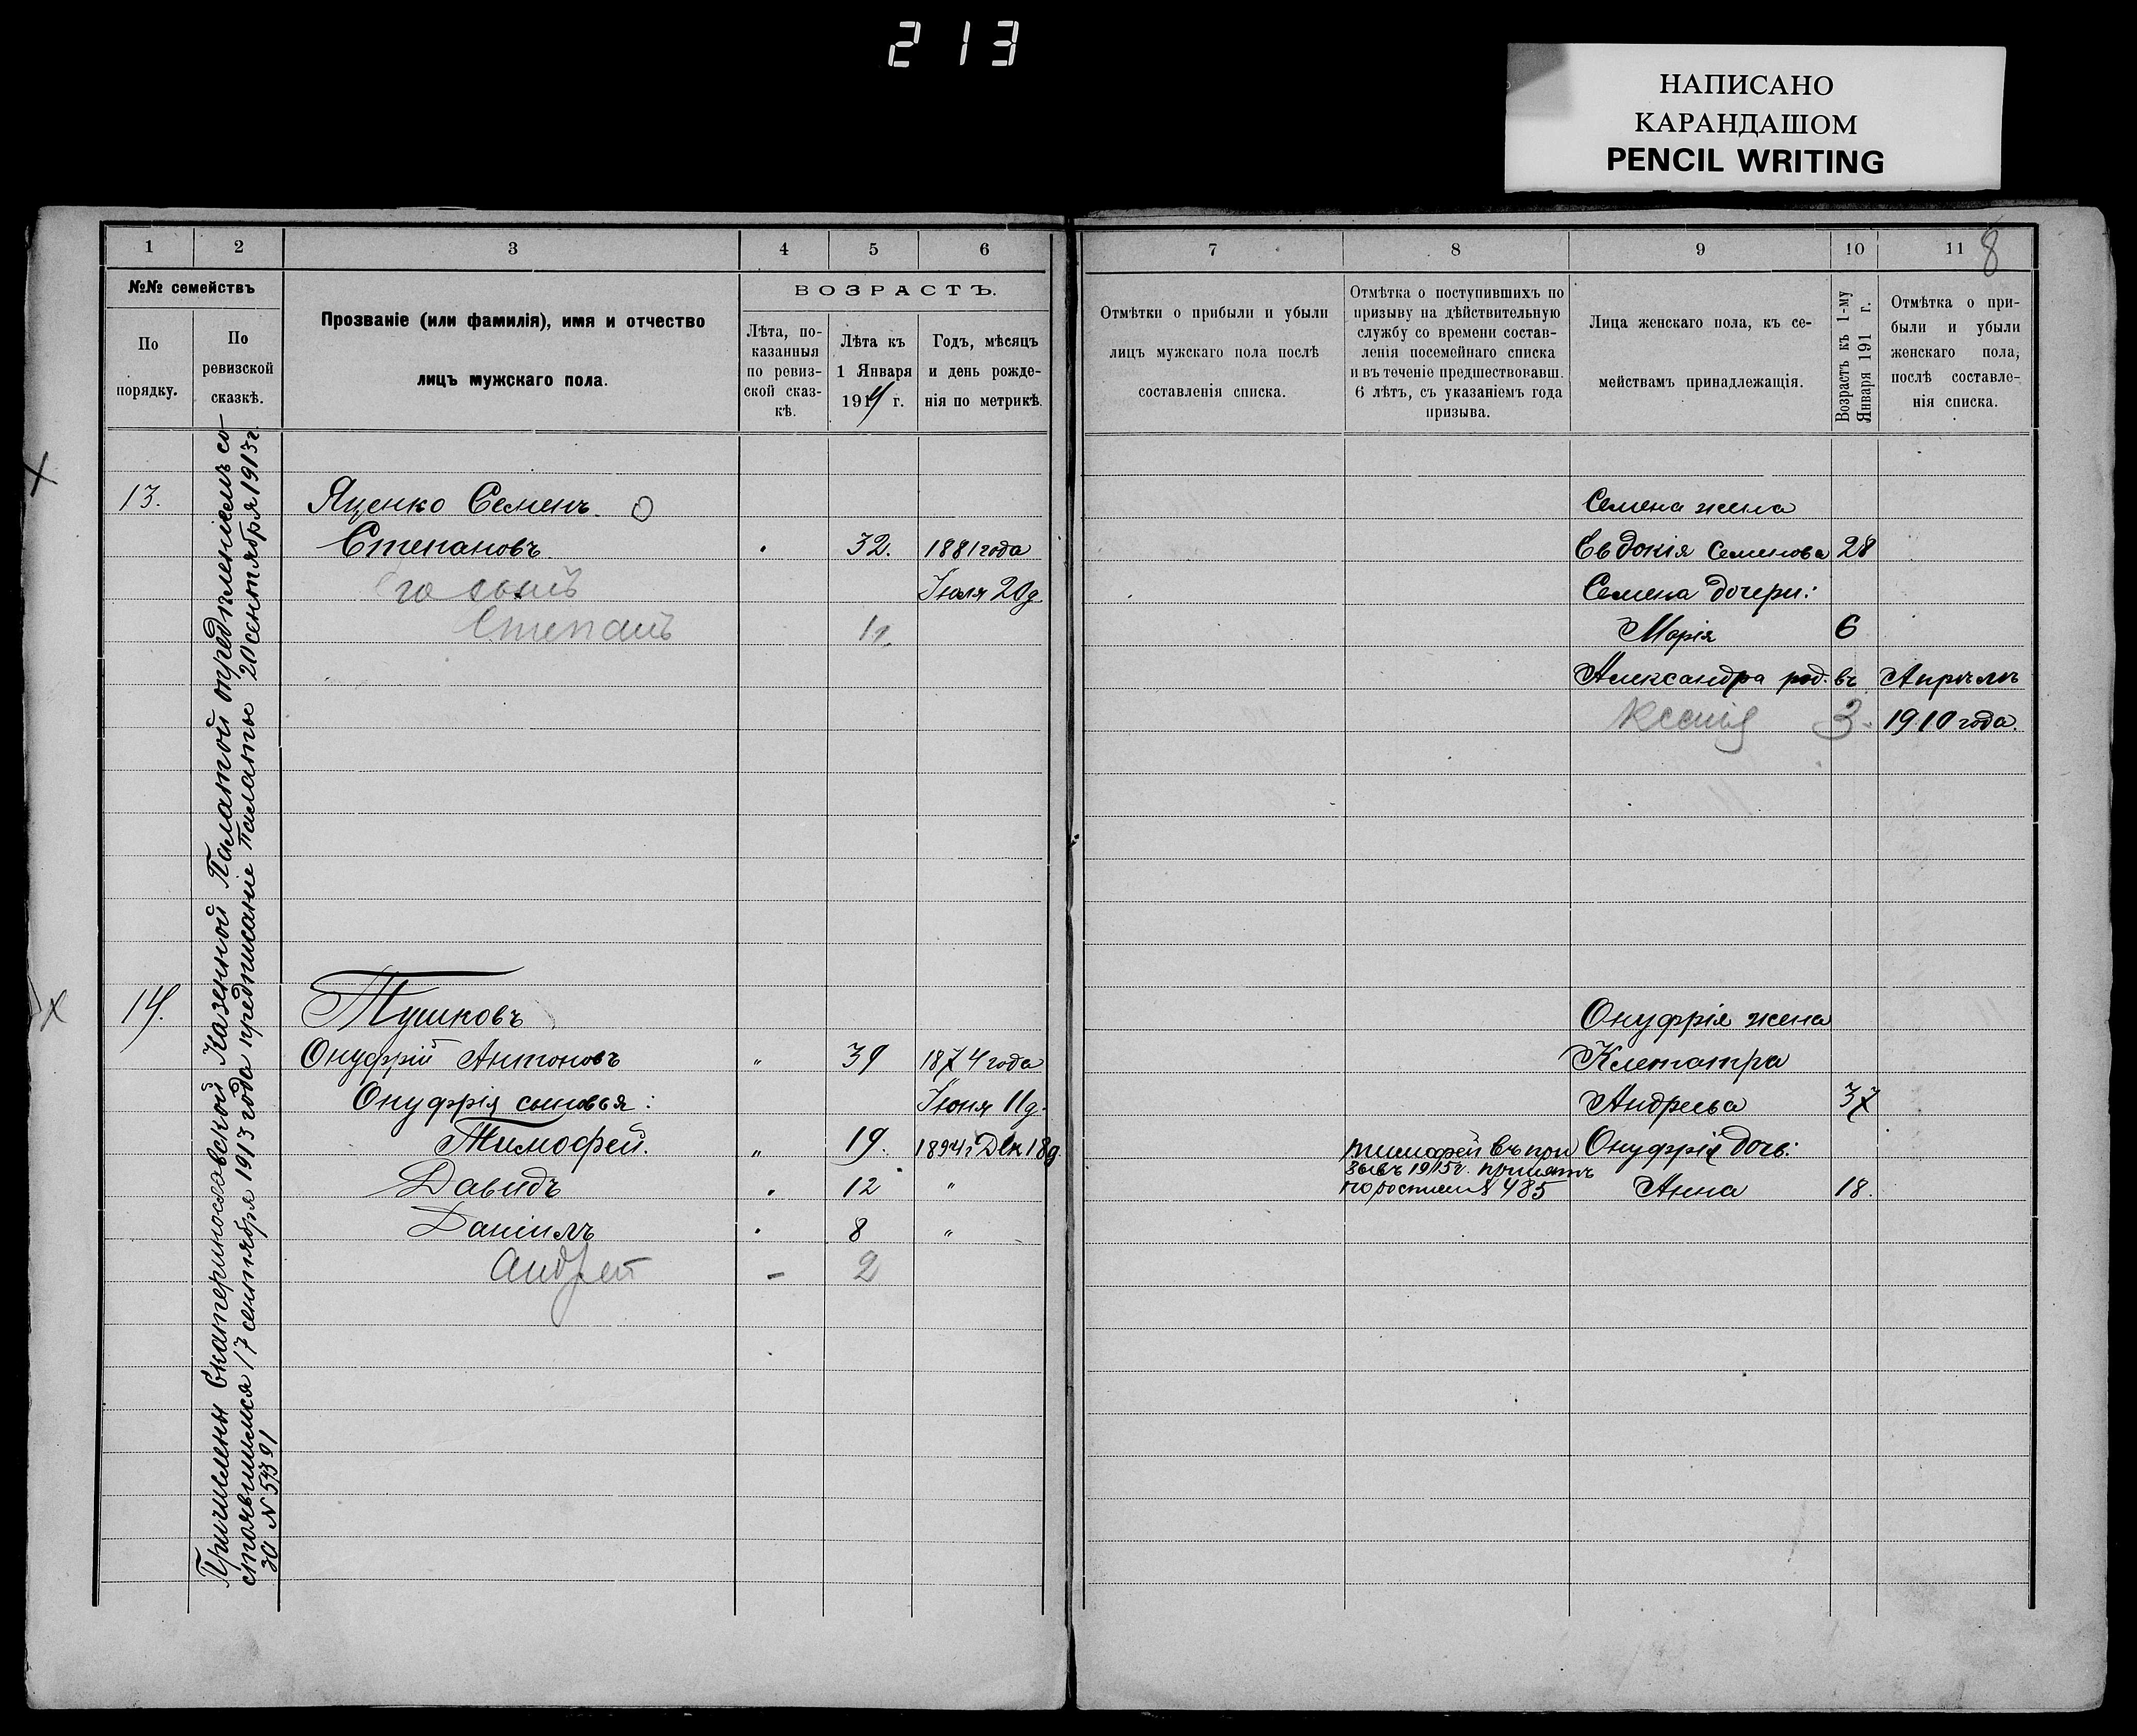 213
НАПИСАНО
КАРАНДАШОМ
PENCIL WRITING
1 2 3 4 5 6
7 8 9 10 11
8
№№ семействъ
По порядку.
По ревизской сказкѣ.
Прозваніе (или фамилія), имя и отчество
лицъ мужскаго пола.
ВОЗРАСТЪ.
Лѣта, по-
казанныя
по ревиз-
ской сказ-
кѣ.
Лѣта къ
1 Января
1914 г.
Годъ, мѣсяцъ
и день рожде-
нія по метрикѣ.
Отмѣтки о прибыли и убыли
лицъ мужскаго пола послѣ
составленія списка.
Отмѣтка о поступившихъ по
призыву на дѣйствительную
службу со времени состав-
ленія посемейнаго списка
и въ теченіе предшествовавш.
6 лѣтъ, съ указаніемъ года
призыва.
Лица женскаго пола, къ се-
мействамъ принадлежащія.
Возрастъ къ 1-му
Января 191 г.
Отмѣтка о при-
были и убыли
женскаго пола,
послѣ составле-
нія списка.
Причислены Екатеринославской Казенной Палатой опредѣленіемъ со-
стоявшимся 17 сентября 1913 года предписаніе Палаты 20 сентября 1913 г.
N 53391
13. Яценко Семенъ Семена жена
Степановъ 32. 1881 года Евдокія Семенова 28
Его сынъ Іюля 20 д. Семена дочери:
Степанъ Марія 6
Александра род. въ Апрѣлѣ
Ксенія 3 1910 года.
14. Тушковъ Онуфрія жена
Онуфрій Антоновъ " 39 1874 года Клеопатра
Онуфрія сыновья: Іюня 11 д. Андреева 37
Тимофей. " 19. 1894 г. Дек 18 д. Тимофей въ при Онуфрія дочь:
зывъ 1915 г. принятъ
Давидъ 12 " по 485 Анна 18.
Даніилъ 8 "
Андрей - 2